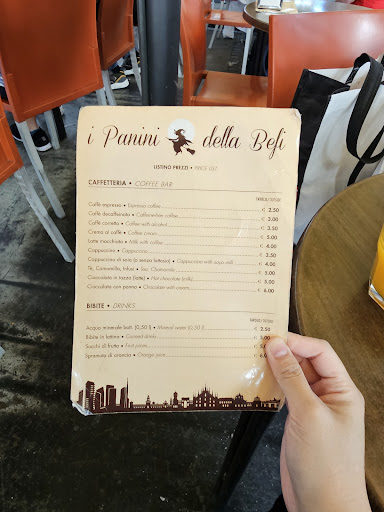 i Panini della Befi
LISTINO PREZZI • PRICE LIST
CAFFETTERIA • COFFEE BAR
Caffè espresso • Espresso coffee € 2.50
Caffè decaffeinato • Caffeine-free coffee € 3.00
Caffè corretto • Coffee with alcohol € 3.50
Crema al caffè • Coffee cream € 5.00
Latte macchiato • Milk with coffee € 4.00
Cappuccino • Cappuccino € 3.50
Cappuccino di soia (o senza lattosio) • Cappuccino with soya milk € 4.00
Tè, Camomilla, Infusi • Tea, Chamomile € 5.00
Cioccolata in tazza (latte) • Hot chocolate (milk) € 5.00
Cioccolata con panna • Chocolate with cream € 6.00
BIBITE • DRINKS
Acqua minerale bott. (0,50 l) • Mineral water (0,50 l) € 2.50
Bibite in lattina • Canned drinks € 5.00
Succhi di frutta • Fruit juices €
Spremuta di arancia • Orange juice €